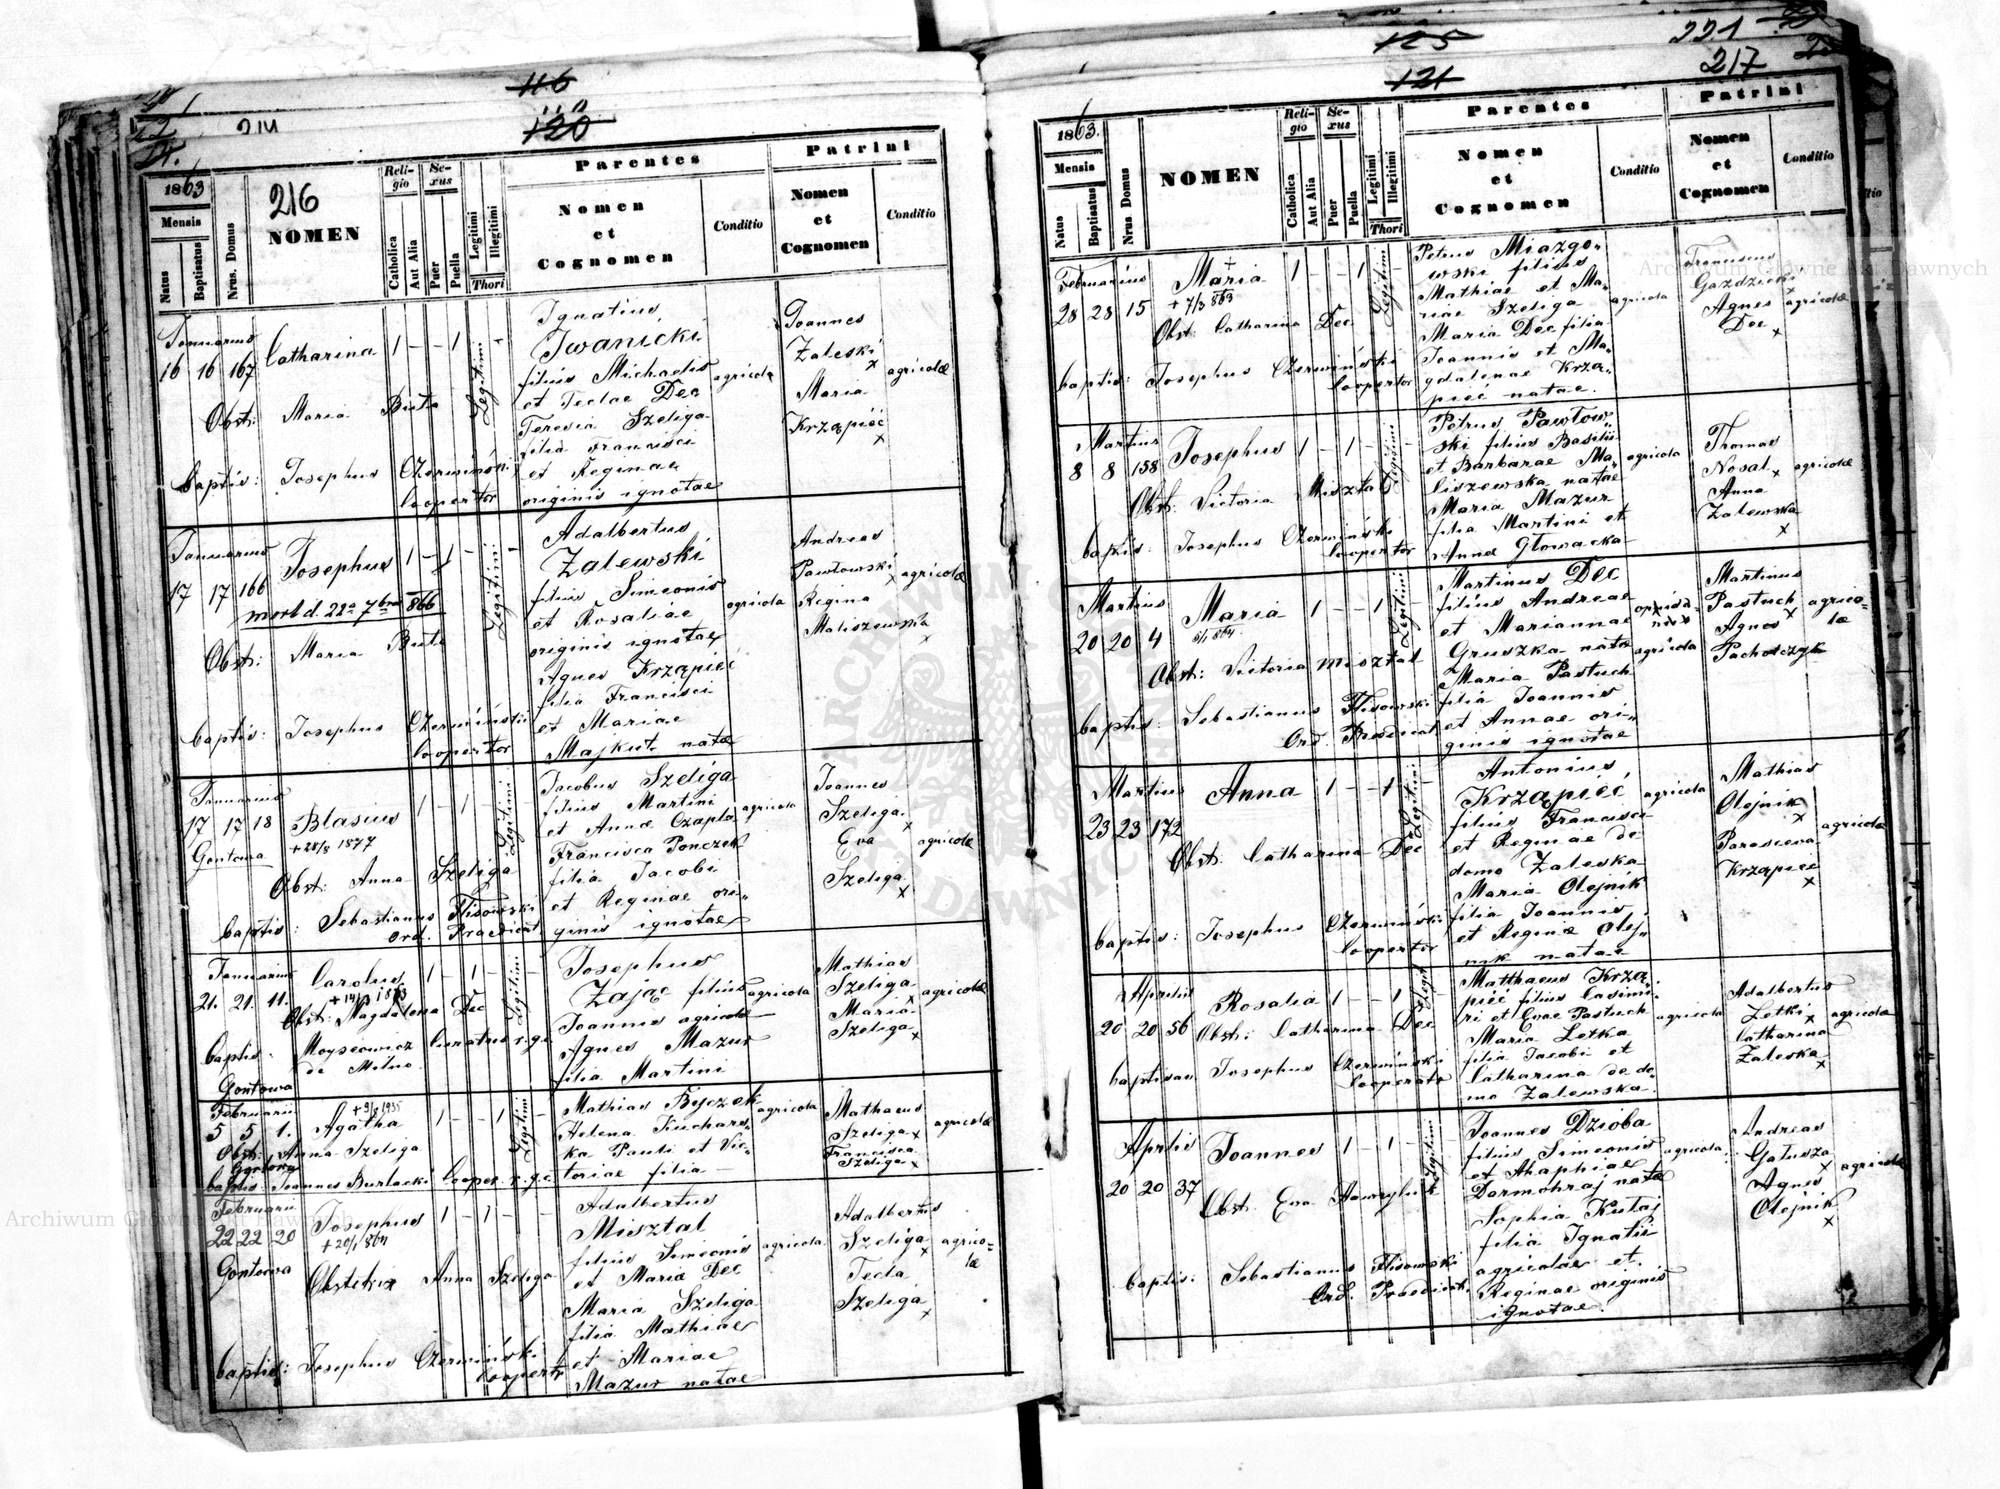 116
120
214
1863
Mensis
Natus
Baptisatus
Nrus. Domus
216
NOMEN
Religio
Catholica
Aut Alia
Sexus
Puer
Puella
Legitimi
Illegitimi
Thori
Parentes
Nomen
et
Cognomen
Conditio
Patrini
Nomen
et
Cognomen
Conditio
Januarius
16 16 167 Catharina 1 – – 1 Legitimi
Obst: Maria Buta
baptis: Josephus Czerwiński
Cooperator
Ignatius
Iwanicki
filius Michaelis
et Teclae Dec
Teresia Szeliga
filia Francisci
et Reginae
originis ignotae
agricola
Joannes
Zaleski
x
Maria
Krząpieć
x
agricolae
Januarius
17 17 166 Josephus 1 – 1 – Legitimi
mort d. 22a 7bris 866
Obst: Maria Buta
baptis: Josephus Czerwiński
Cooperator
Adalbertus
Zalewski
filius Simeonis
et Rosaliae
originis ignotae
Agnes Krząpieć
filia Francisci
et Mariae
Majkut natae
agricola
Andreas
Pawłowski
x
Regina
Maliszewska
x
agricolae
Januarius
17 17 18 Blasius 1 – 1 – Legitimi
Gontowa + 28/8 1877
Obst: Anna Szeliga
baptis: Sebastianus Flisowski
Ord. Praedicat
Jacobus Szeliga
filius Martini
et Annae Czapla
Francisca Ponczek
filia Jacobi
et Reginae ori-
ginis ignotae
agricola
Joannes
Szeliga
x
Eva
Szeliga
x
agricolae
Januarius
21. 21. 11. Carolus 1 – 1 – Legitimi
Obst: Magdalena Dec
baptis: Moyseowicz Curatus r.g.c.
de Milno
Gontowa
Josephus
Zając filius
Joannis agricolae
Agnes Mazur
filia Martini
agricola
Mathias
Szeliga
x
Maria
Szeliga
x
agricolae
Februarii + 9/3 1935
5 5 1. Agatha 1 – – 1 Legitimi
Obst: Anna Szeliga
Gontowa
baptis: Joannes Burlacki Cooper. r.g.c.
Mathias Byczek
Helena Kuchars-
ka Pauli et Vic-
toriae filia
agricola
Mathaeus
Szeliga x
Francisca
Szeliga x
agricolae
Februarii
22 22 20 Josephus 1 – 1 –
+ 20/1 864
Gontowa
Obstetrix Anna Szeliga
baptis: Josephus Czerwiński
Cooperator
Adalbertus
Misztal
filius Simeonis
et Mariae Dec
Maria Szeliga
filia Mathiae
et Mariae
Mazur natae
agricola
Adalbertus
Szeliga
x
Tecla
Szeliga
x
agrico-
lae
125
121
221
217
1863.
Mensis
Natus
Baptisatus
Nrus. Domus
NOMEN
Religio
Catholica
Aut Alia
Sexus
Puer
Puella
Legitimi
Illegitimi
Thori
Parentes
Nomen
et
Cognomen
Conditio
Patrini
Nomen
et
Cognomen
Conditio
Februarius
28 28 15 Maria 1 – – 1 Legitimi
+ 7/3 863
Obst: Catharina Dec
baptis: Josephus Czerwiński
Cooperator
Petrus Miazgo-
wski filius
Mathiae et Ma-
riae Szeliga
Maria Dec filia
Joannis et Ma-
gdalenae Krzą-
pieć natae.
agricola
Franciscus
Gazdzicki
x
Agnes
Dec
x
agricolae
Martius
8 8 158 Josephus 1 – 1 – Legitimi
Obst. Victoria Misztal
baptis: Josephus Czerwiński
Cooperator
Petrus Pawłow-
ski filius Basilii
et Barbarae Ma-
liszewska natae
Maria Mazur
filia Martini et
Annae Głowacka
agricola
Thomas
Nosal
x
Anna
Zalewska
x
agricolae
Martius
20 20 4 Maria 1 – – 1 Legitimi
Obst: Victoria Misztal
baptis: Sebastianus Flisowski
Ord. Praedicat
Martinus Dec
filius Andreae
et Mariannae
Gruszka natae
Maria Pastuch
filia Joannis
et Annae ori-
ginis ignotae
agricola
Martinus
Pastuch
x
Agnes
Pacholczyk
agrico-
lae
Martius
23 23 172 Anna 1 – – 1 Legitimi
Obst: Catharina Dec
baptis: Josephus Czerwiński
Cooperator
Antonius
Krząpieć,
filius Francisci
et Reginae de
domo Zaleska
Maria Olejnik
filia Joannis
et Reginae Olej-
nik natae
agricola
Mathias
Olejnik
x
Parascena
Krząpieć
x
agricolae
Aprilis
20 20 56 Rosalia 1 – – 1 Legitimi
Obst: Catharina Dec
baptisav Josephus Czerwiński
Cooperator
Matthaeus Krzą-
pieć filius Casimi-
ri et Evae Pastuch
Maria Letka
filia Jacobi et
Catharina de do-
mo Zalewska
agricola
Adalbertus
Letki
x
Catharina
Zaleska
x
agricolae
Aprilis
20 20 37 Joannes 1 – 1 – Legitimi
Obst. Eva
baptis: Sebastianus Flisowski
Ord. Praedicat.
Joannes Dzióba
filius Simeonis
et Ahaphiae
Darmohraj natae
Sophia Kutaj
filia Ignatii
agricolae et
Reginae originis
ignotae.
agricola
Andreas
Gałusza
x
Agnes
Olejnik
x
agricolae
Archiwum Główne Akt Dawnych
Archiwum Główne Akt Dawnych
Archiwum Główne Akt Dawnych
ARCHIWUM
AKT DAWNYCH